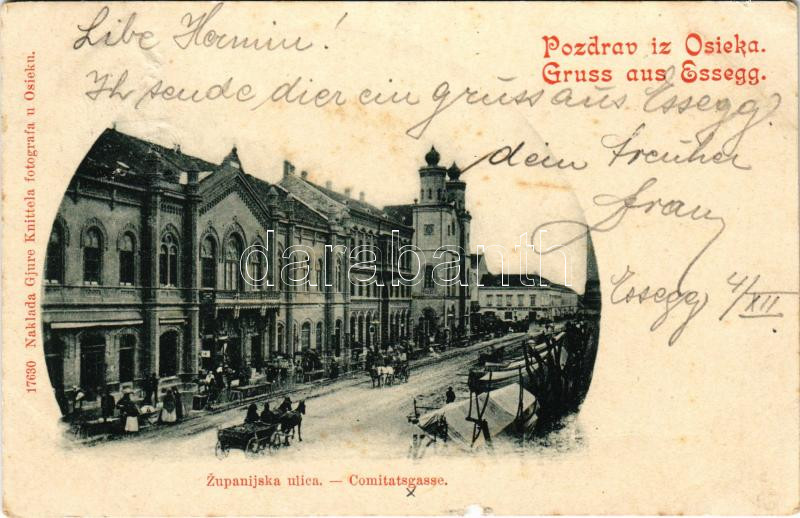 Libe Hermin!
Pozdrav iz Osieka.
Gruss aus Essegg.
Ih sende dier ein gruss aus Essegg.
dein treuher
Franz
Essegg 4/XII
17630 Naklada Gjure Knittela fotografa u Osieku.
darabanth
Županijska ulica. — Comitatsgasse.
x